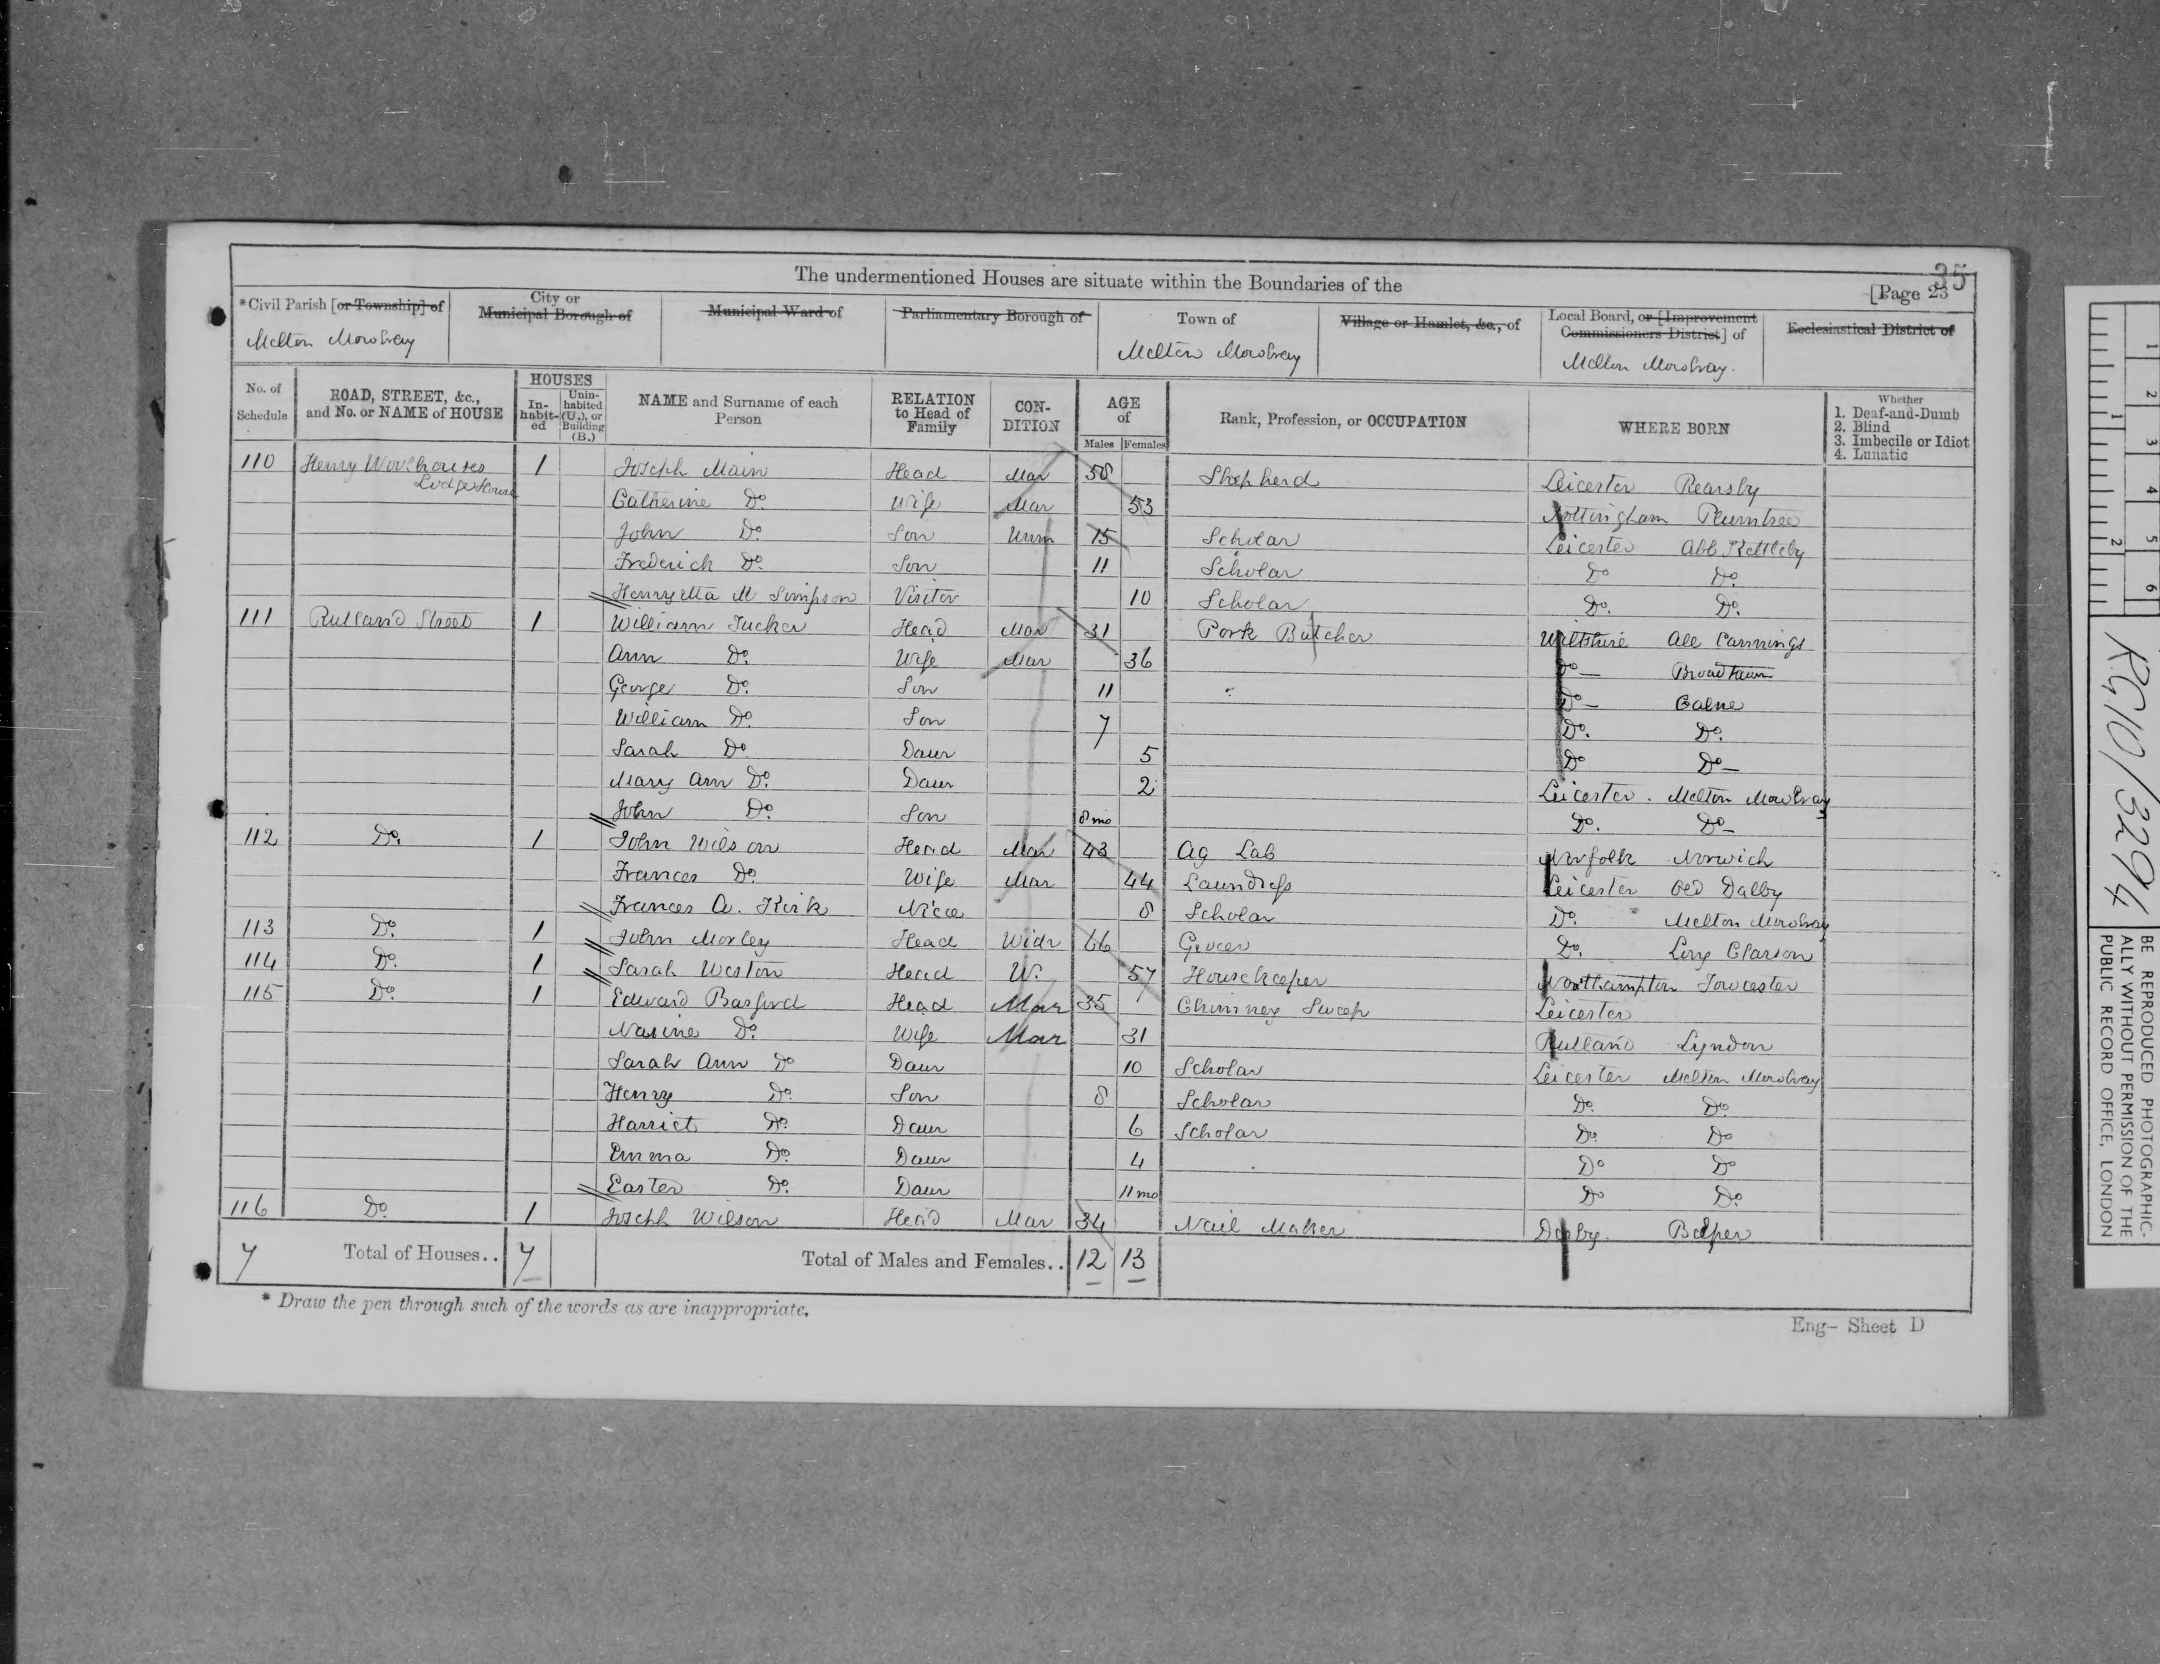 The undermentioned Houses are situate within the Boundaries of the
35
[Page 23
*Civil Parish [or Township] of
City or Municipal Borough of
Municipal Ward of
Parliamentary Borough of
Town of
Village or Hamlet, &c., of
Local Board, or [Improvement Commissioners District] of
Ecclesiastical District of
Melton Mowbray
Melton Mowbray
Melton Mowbray.
No. of Schedule
ROAD, STREET, &c., and No. or NAME of HOUSE
HOUSES
In-habit-ed
Unin-habited (U.), or Building (B.)
NAME and Surname of each Person
RELATION to Head of Family
CON-DITION
AGE of
Males
Females
Rank, Profession, or OCCUPATION
WHERE BORN
Whether
1. Deaf-and-Dumb
2. Blind
3. Imbecile or Idiot
4. Lunatic
110 Henry Lodge House 1 Joseph Main Head Mar 58 Shepherd Leicester Rearsby
Catherine Do. Wife Mar 53 Nottingham Plumtree
John Do. Son Unm 15 Scholar Leicester Abb Kettleby
Frederick Do. Son 11 Scholar Do Do.
Henryetta M Simpson Visitor 10 Scholar Do. Do.
111 Rutland Street 1 William Tucker Head Mar 31 Pork Butcher Wiltshire All Cannings
Ann Do. Wife Mar 36 Do — Broad Town
George Do. Son 11 Do — Calne
William Do. Son 7 Do. Do.
Sarah Do Daur 5 Do Do —
Mary Ann Do. Daur 2 Leicester. Melton Mowbray
John Do. Son 8 mo Do. Do —
112 Do. 1 John Wilson Head Mar 43 Ag Lab Norfolk Norwich
Frances Do. Wife Mar 44 Laundress Leicester Old Dalby
Frances A. Kirk Niece 8 Scholar Do. Melton Mowbray
113 Do. 1 John Morley Head Widr 66 Grocer Do. Long Clarson
114 Do. 1 Sarah Weston Head W. 57 Housekeeper Northampton Towcester
115 Do. 1 Edward Basford Head Mar 35 Chimney Sweep Leicester
Do. Wife Mar 31 Rutland Lyndon
Sarah Ann Do Daur 10 Scholar Leicester Melton Mowbray
Henry Do. Son 8 Scholar Do. Do.
Harriet Do. Daur 6 Scholar Do. Do
Emma Do. Daur 4 Do Do
Easter Do. Daur 11 mo Do Do.
116 Do. 1 Joseph Wilson Head Mar 34 Nail Maker Derby. Belper
7 Total of Houses.. 7 Total of Males and Females.. 12 13
* Draw the pen through such of the words as are inappropriate.
Eng- Sheet D
1 2 3 4 5 6
1 2
RG10/3294
BE REPRODUCED PHOTOGRAPHIC-
ALLY WITHOUT PERMISSION OF THE
PUBLIC RECORD OFFICE, LONDON